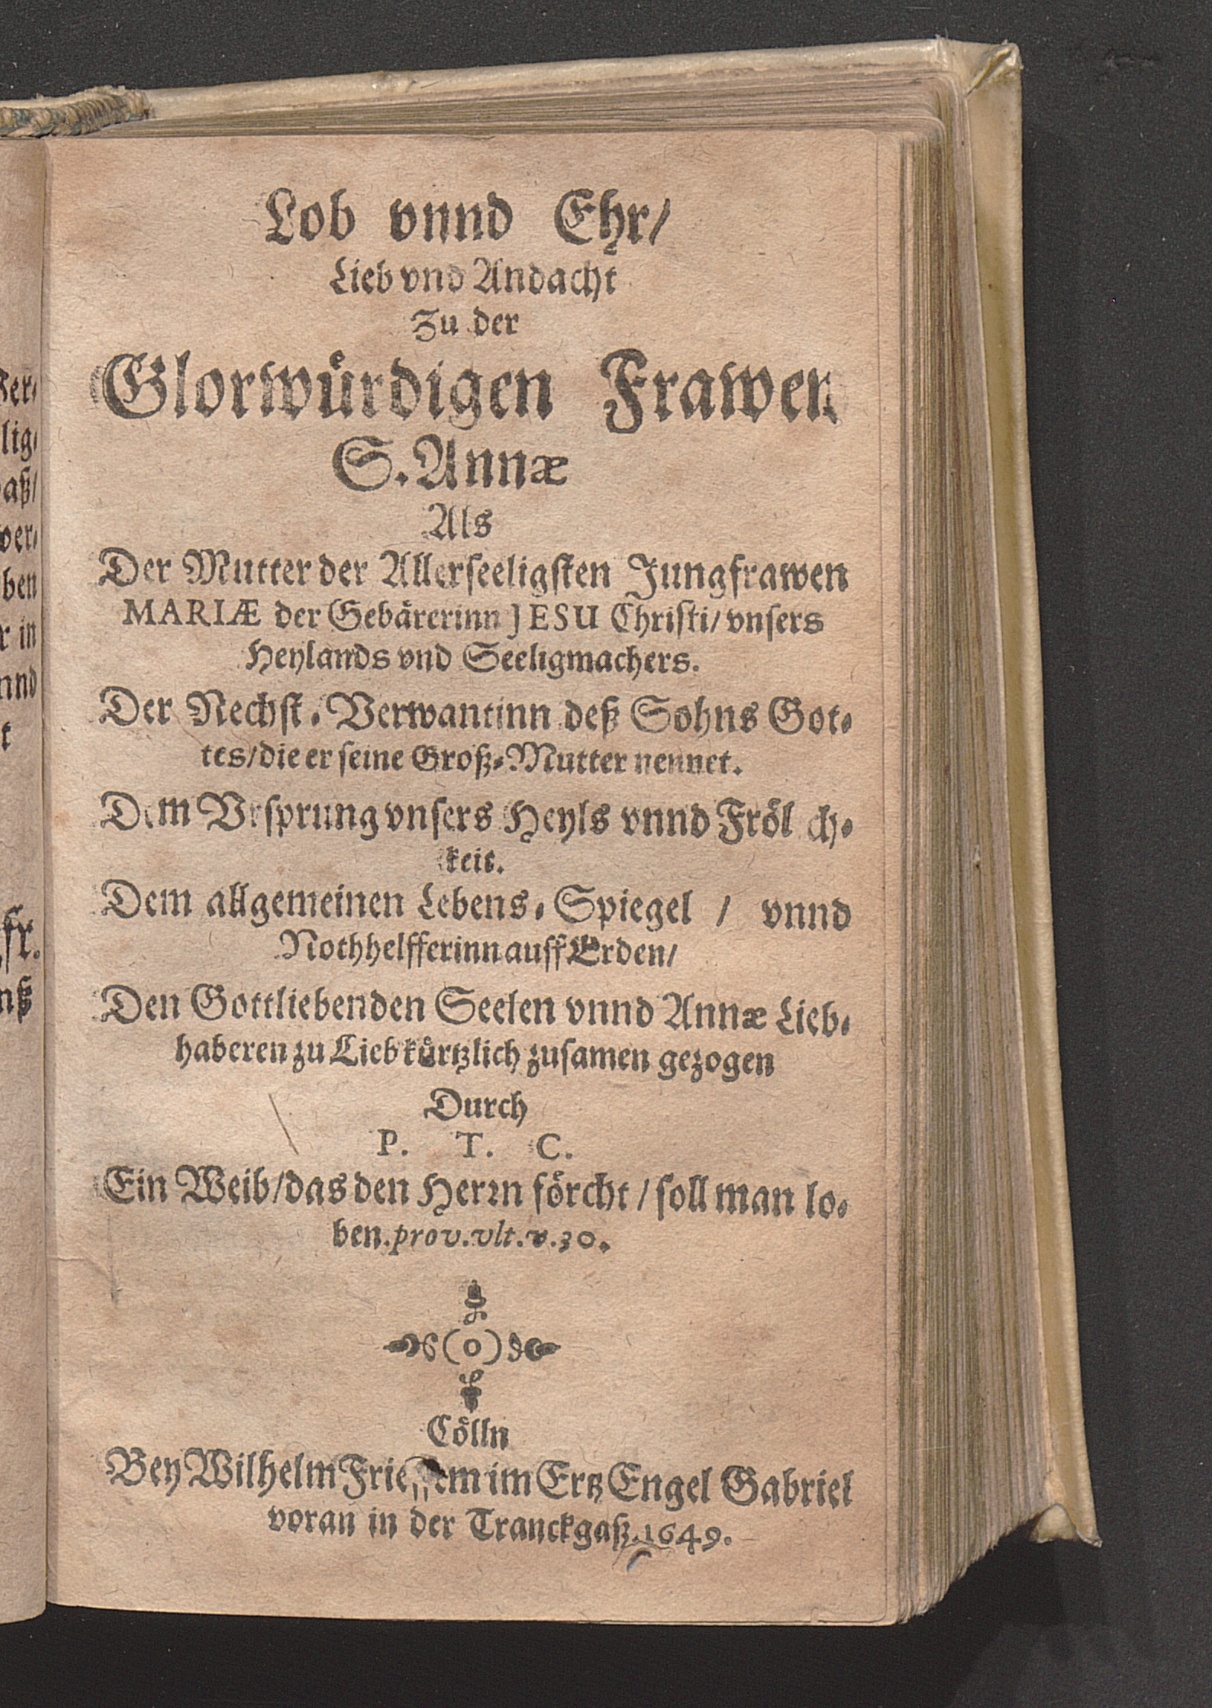 Lob vnnd Ehr/
Lieb vnd Andacht
Zu der
Glorwürdigen Frawen
S. Annæ
Als
Der Mutter der Allerseeligsten Jungfrawen
MARIÆ der Gebärerinn JESU Christi/ vnsers
Heylands vnd Seeligmachers.
Der Nechst-Verwantinn deß Sohns Got-
tes/ die er seine Groß-Mutter nennet.
Dem Vrsprung vnsers Heyls vnnd Frölich-
keit.
Dem allgemeinen Lebens-Spiegel / vnnd
Nothhelfferinn auff Erden/
Den Gottliebenden Seelen vnnd Annæ Lieb-
haberen zu Lieb kürtzlich zusamen gezogen
Durch
P. T. C.
Ein Weib/ das den Herrn förcht / soll man lo-
ben. prov. vlt. v. 30.
(o)
Cölln
Bey Wilhelm Friessem im Ertz Engel Gabriel
voran in der Tranckgaß. 1649.